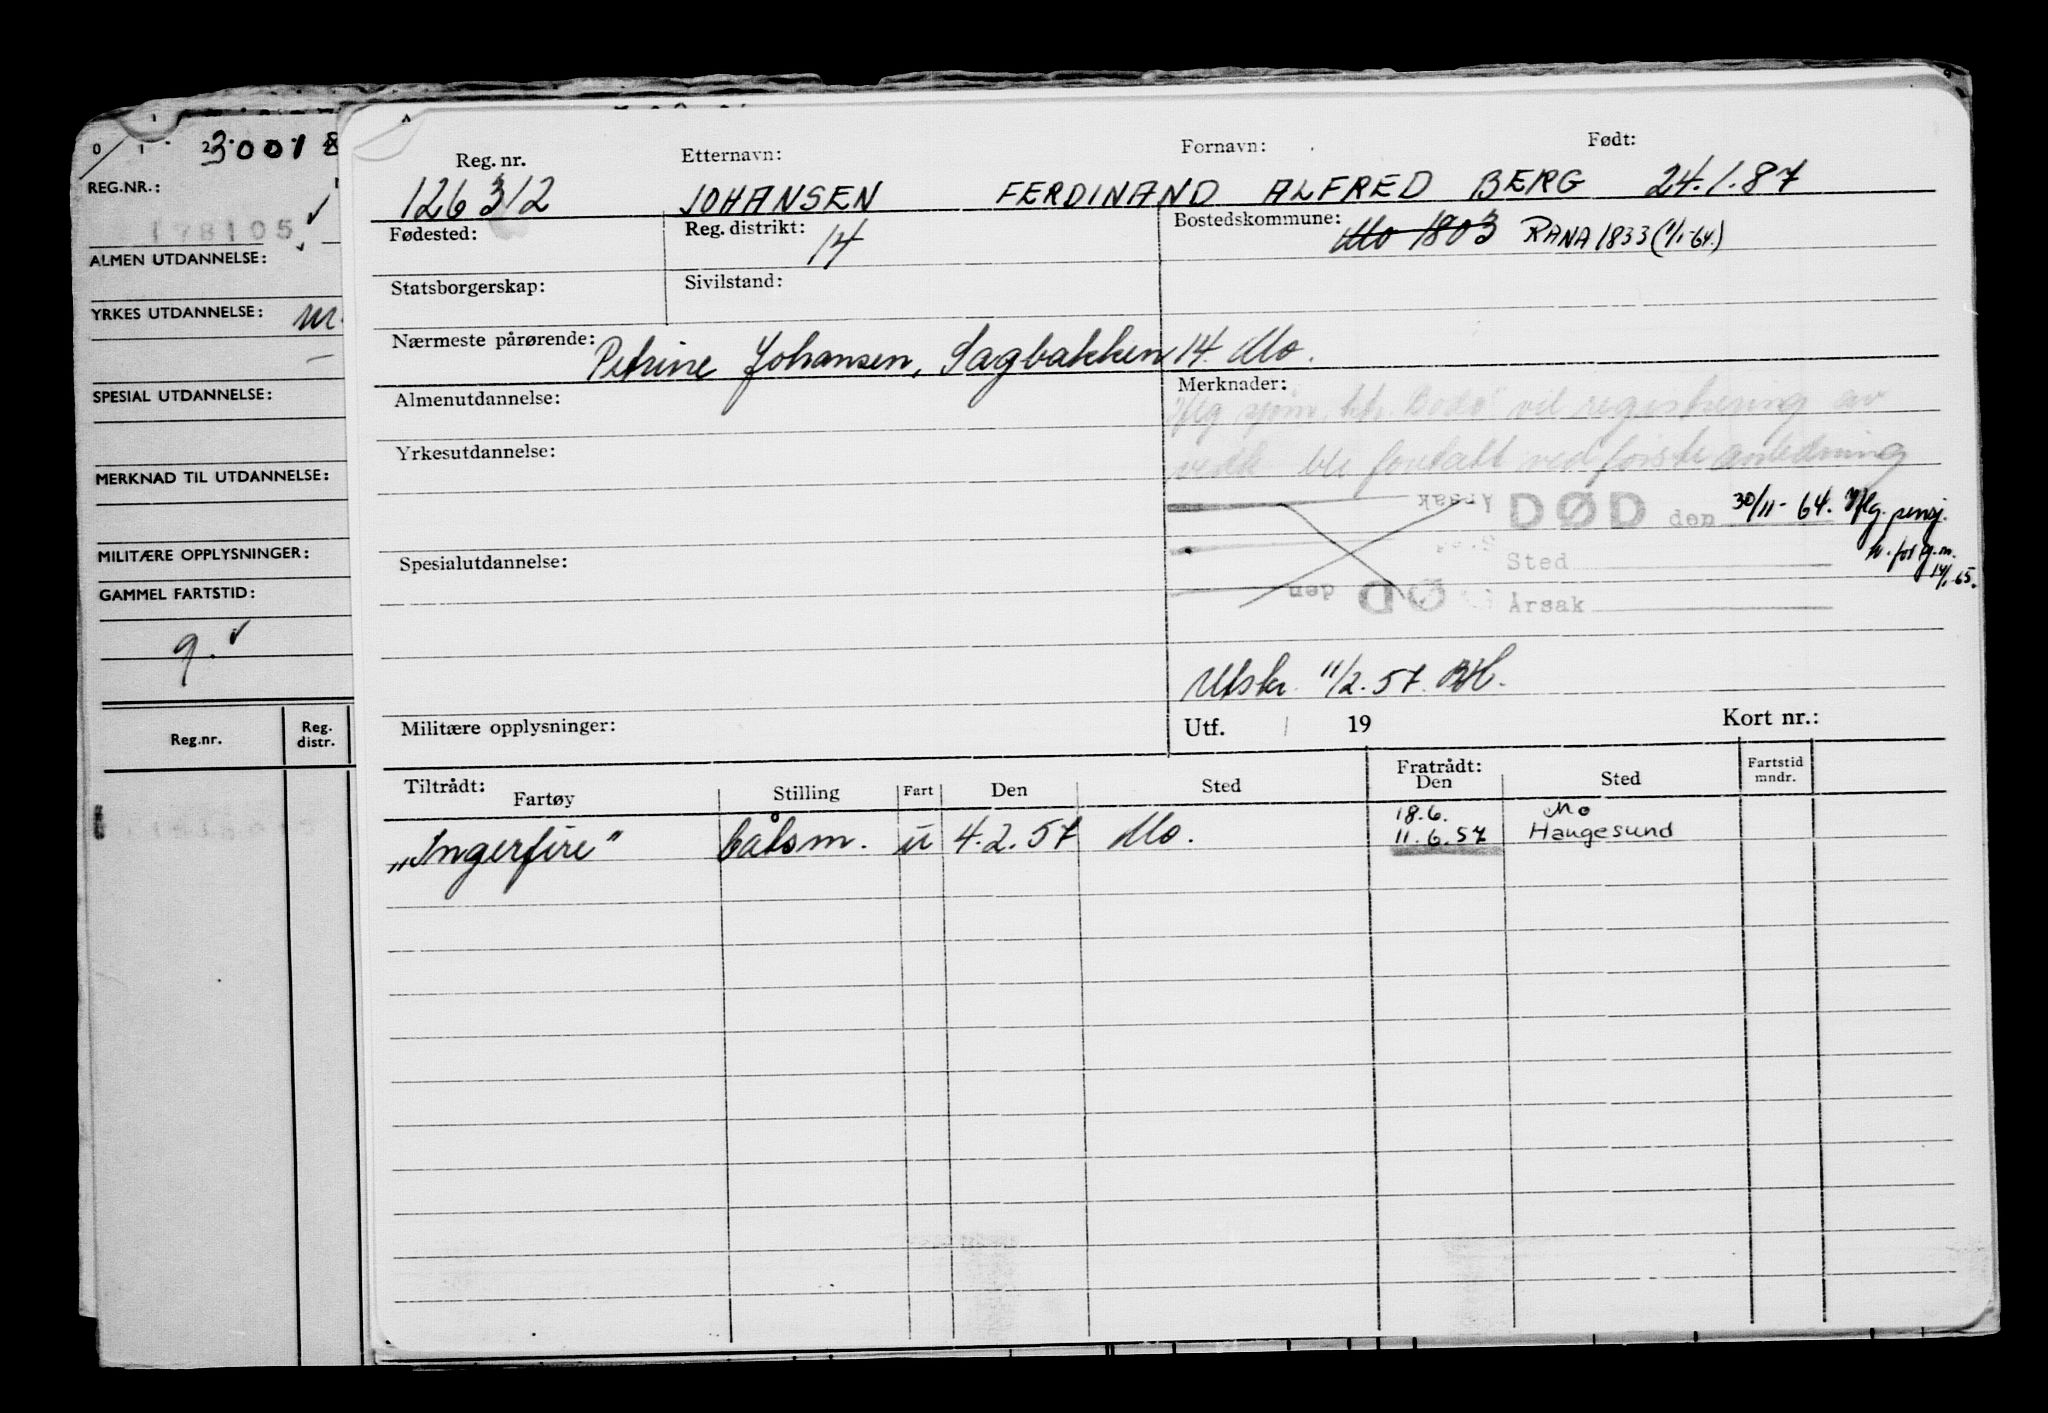 0 1 2
30018
REG.NR.:
178105
ALMEN UTDANNELSE:
YRKES UTDANNELSE:
SPESIAL UTDANNELSE:
MERKNAD TIL UTDANNELSE:
MILITÆRE OPPLYSNINGER:
GAMMEL FARTSTID:
9.
Reg.nr. Reg. distr.
Reg. nr. Etternavn: Fornavn: Født:
126312 JOHANSEN FERDINAND ALFRED BERG 24.1.87
Fødested: Reg. distrikt: 14 Bostedskommune: Mo 1803 RANA 1833 (1/1-64.)
Statsborgerskap: Sivilstand:
Nærmeste pårørende: Petrine Johansen, Sagbakken 14. Mo.
Almenutdannelse: Merknader:
Iflg sjøm. ktr. Bodø vil registrering av
Yrkesutdannelse:
vedk ble foretatt ved første anledning
Årsak DØD den 30/11-64. Iflg. pensj.
tr. for 14/1-65.
Spesialutdannelse: Sted
DØD den Årsak
Utskr. 11/2.57.
Militære opplysninger: Utf. / 19 Kort nr.:
Tiltrådt: Fratrådt: Fartstid
Fartøy Stilling Fart Den Sted Den Sted mndr.
18.6. Mo
"Ingerfire" båtsm. u 4.2.57 Mo. 11.6.57 Haugesund